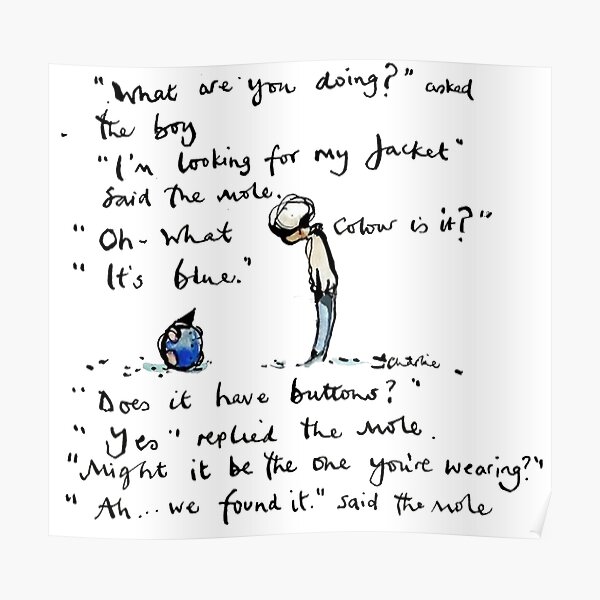 "What are you doing?" asked
the boy
"I'm looking for my Jacket"
said the mole.
"Oh- what colour is it?"
"It's blue."
Charlie
"Does it have buttons?"
"Yes" replied the mole.
"Might it be the one you're wearing?"
"Ah... we found it." said the mole